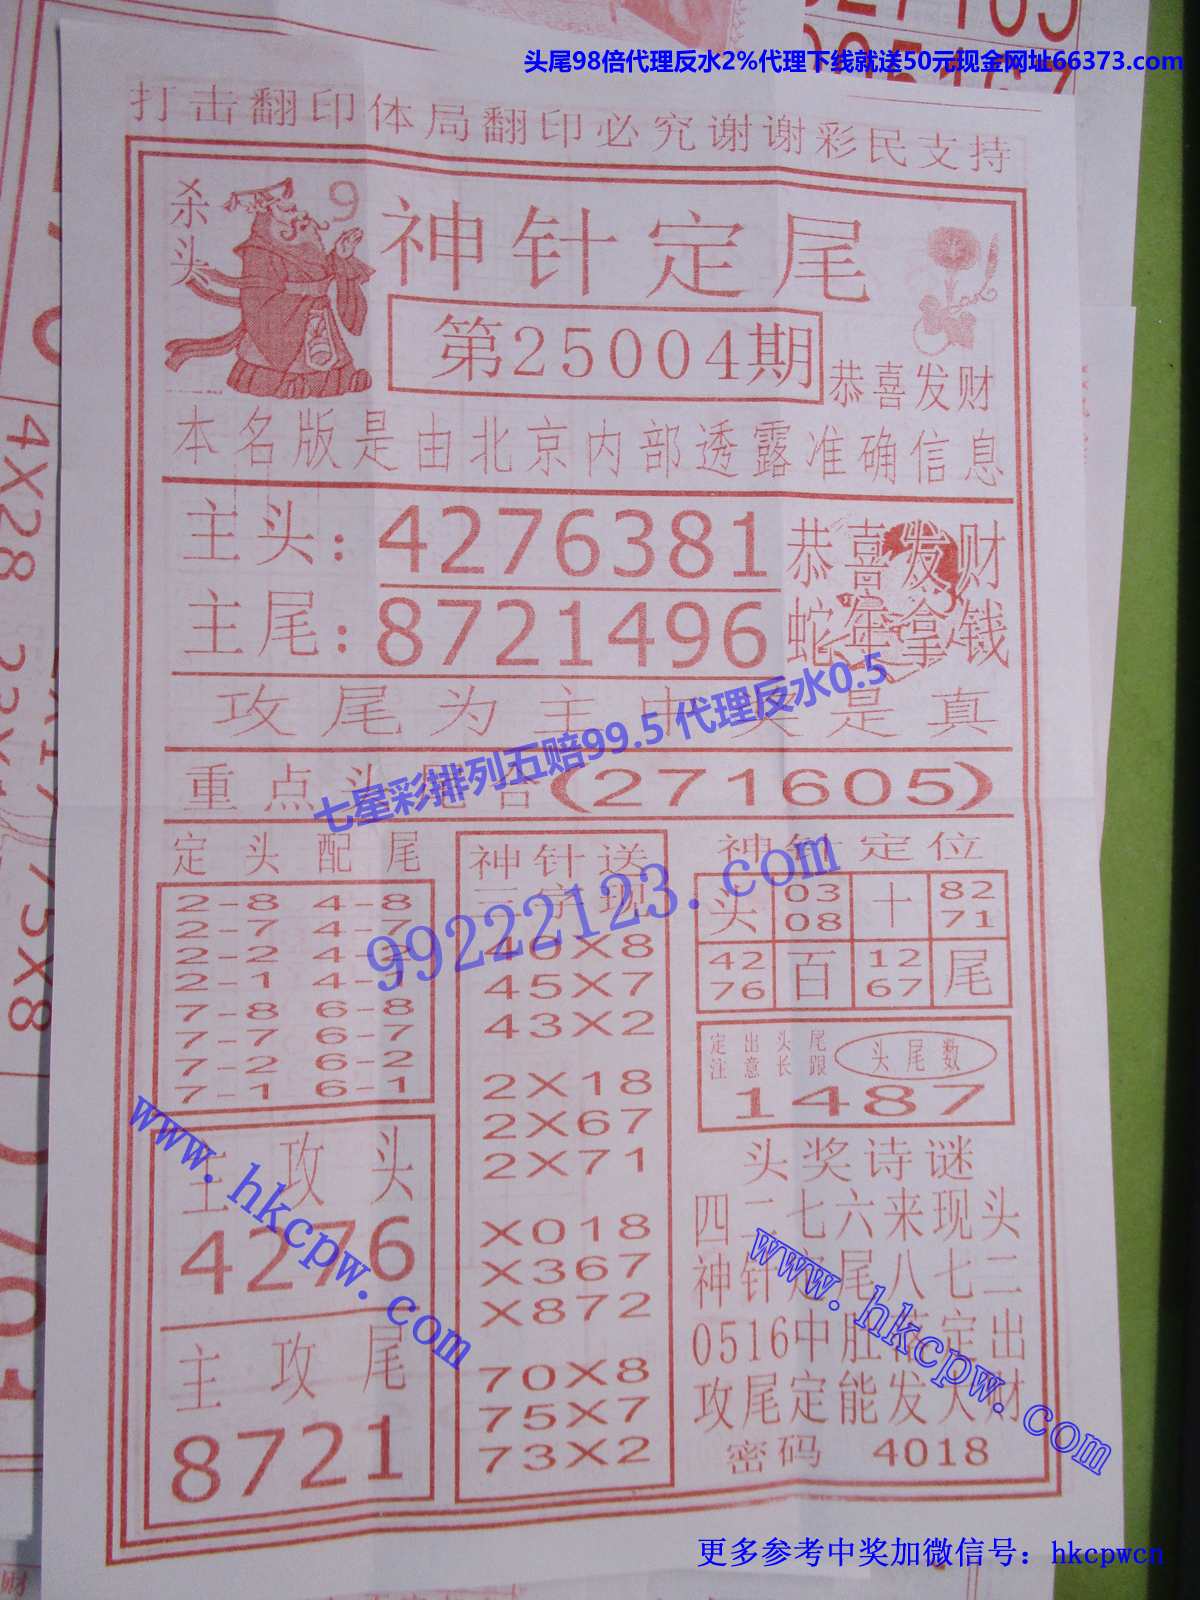 头尾98倍代理反水2%代理下线就送50元现金网址66373.com
打击翻印体局翻印必究谢谢彩民支持
杀头
9
神针定尾
第25004期
恭喜发财
本名版是由北京内部透露准确信息
主头:4276381
恭喜发财
主尾:8721496
蛇年拿钱
攻尾为主中奖是真
七星彩排列五赔99.5 代理反水0.5
重点头尾合(271605)
定头配尾
2-8 4-8
2-7 4-7
2-2 4-2
2-1 4-1
7-8 6-8
7-7 6-7
7-2 6-2
7-1 6-1
神针送
三字现
40X8
45X7
43X2
2X18
2X67
2X71
X018
X367
X872
70X8
75X7
73X2
99222123.com
神针定位
头 03 十 82
08 71
42 百 12 尾
76 67
定出头尾
注意长跟
头尾数
1487
主攻头
4276
主攻尾
8721
www.hkcpw.com
头奖诗谜
四二七六来现头
神针定尾八七二
0516中肚落定出
攻尾定能发大财
密码 4018
www.hkcpw.com
更多参考中奖加微信号：hkcpwcn